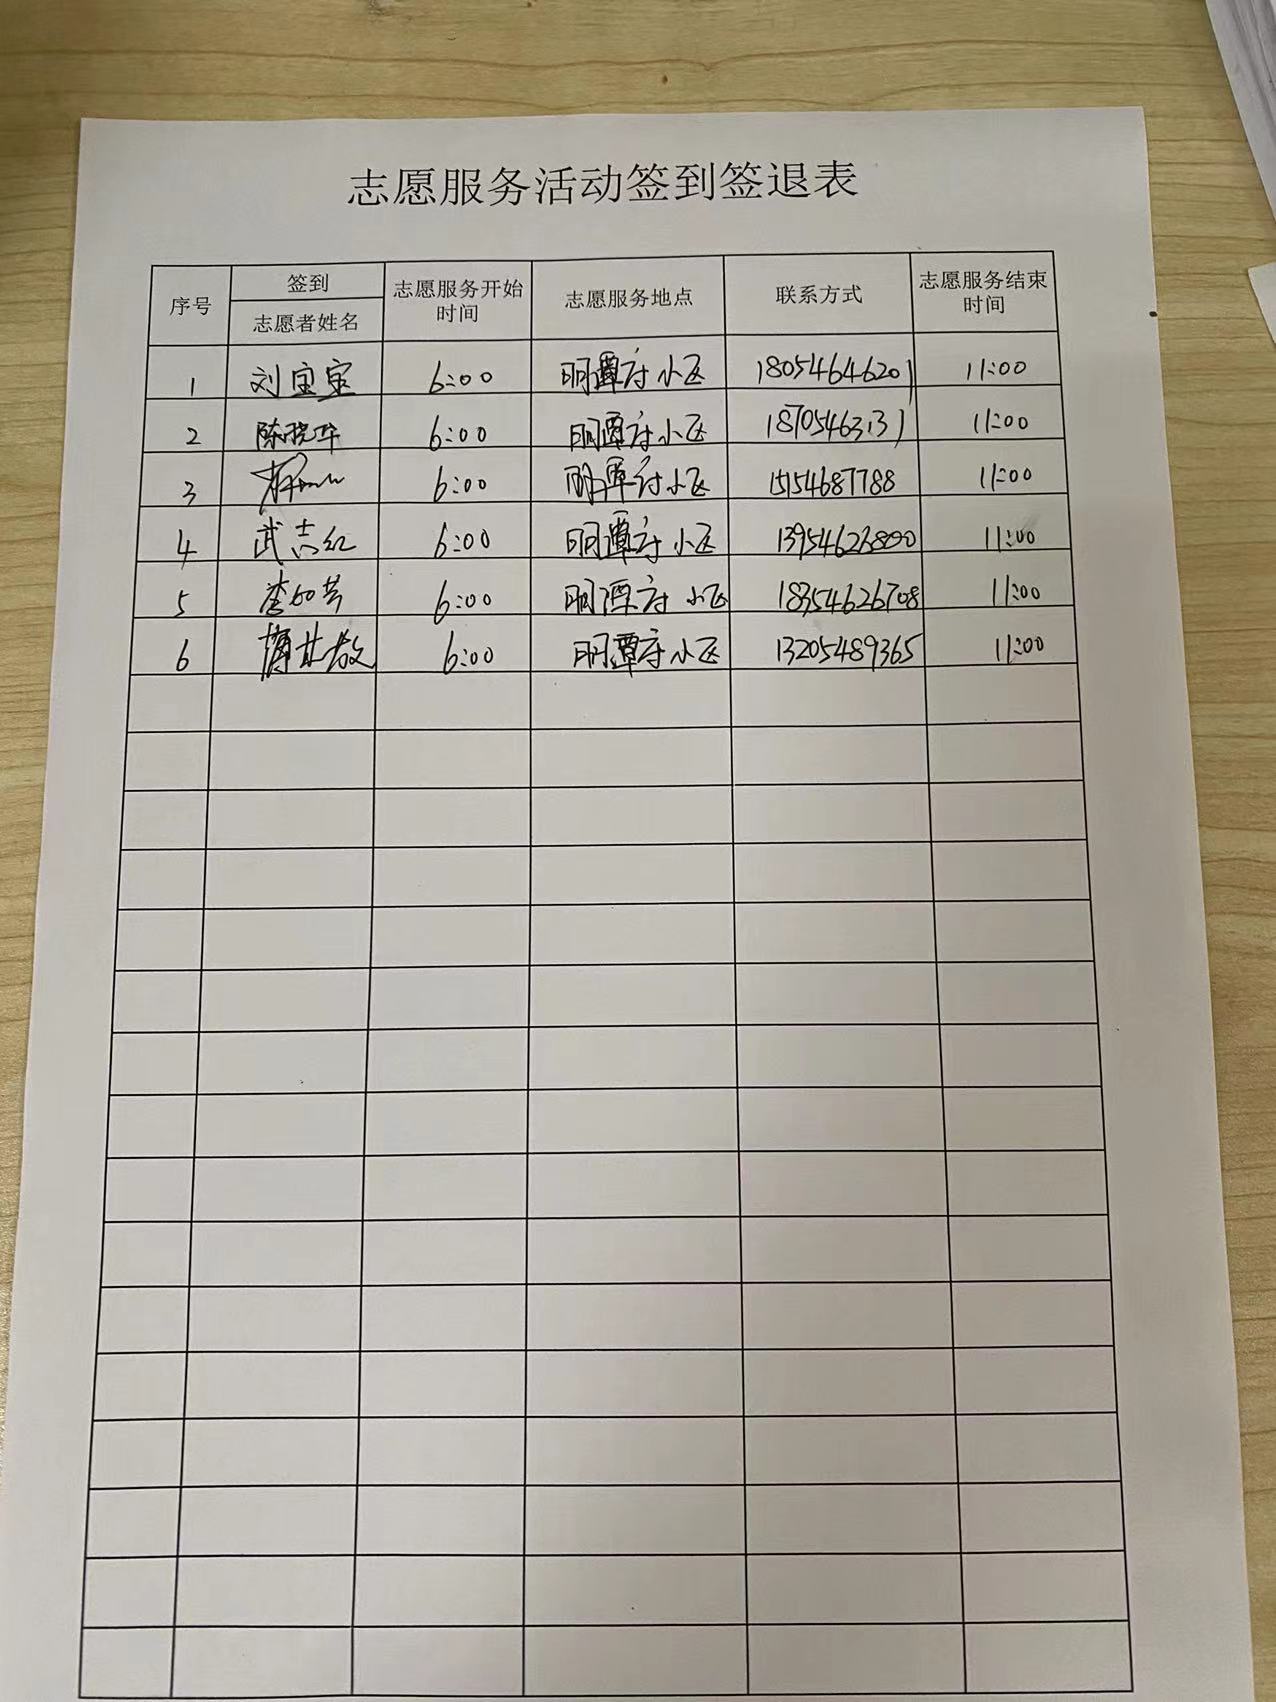 志愿服务活动签到签退表
序号 签到 志愿者姓名 志愿服务开始时间 志愿服务地点 联系方式 志愿服务结束时间
1 刘宝宝 6:00 明潭府小区 18054646201 11:00
2 陈晓华 6:00 明潭府小区 18705463131 11:00
3 6:00 明潭府小区 15154687788 11:00
4 武志红 6:00 明潭府小区 13954626800 11:00
5 李如芳 6:00 明潭府小区 18354626708 11:00
6 6:00 明潭府小区 13205489365 11:00